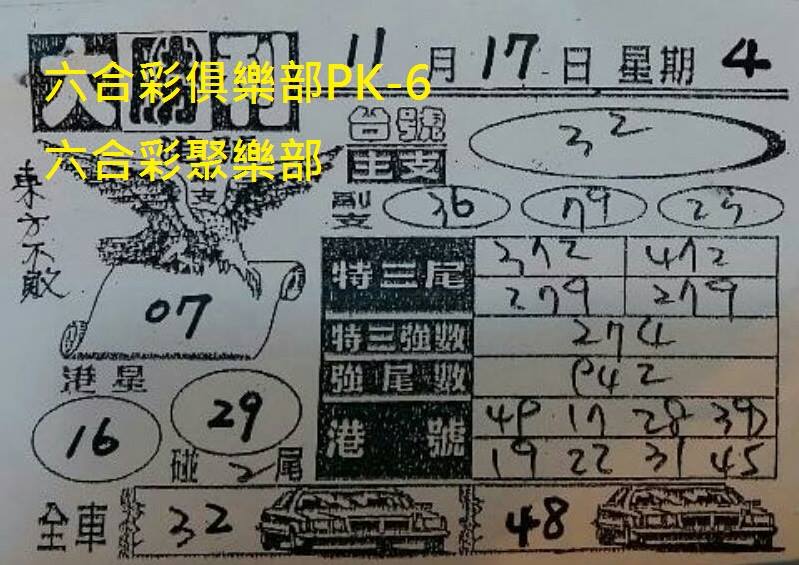 大勝刊 11月17日 星期4
六合彩俱樂部PK-6
六合彩聚樂部
台號
主支 32
副支 36 79 25
支
東方不敗
07
特三尾 372 472
279 279
特三強數 274
強尾數 942
港星
16 29
碰2尾
港號 49 17 28 39
19 22 31 45
全車 32 48